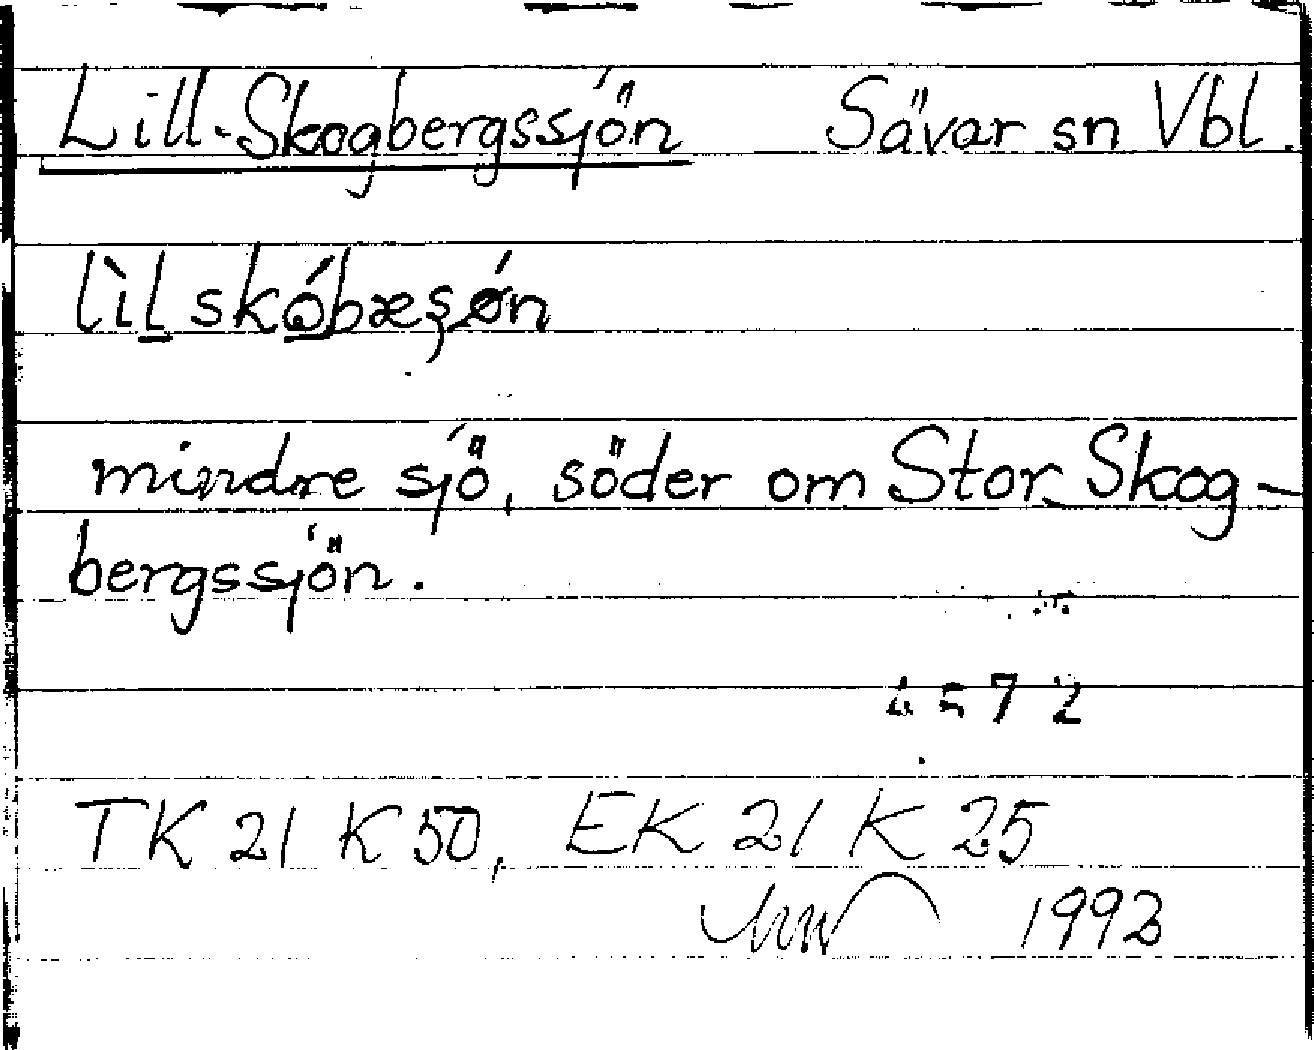 Lill-Skogbergssjön Sävar sn Vbl.
lìl skǿbæşǿn
mindre sjö, söder om Stor Skog-
bergssjön.
72
TK 21 K 50, EK 21 K 25
1992